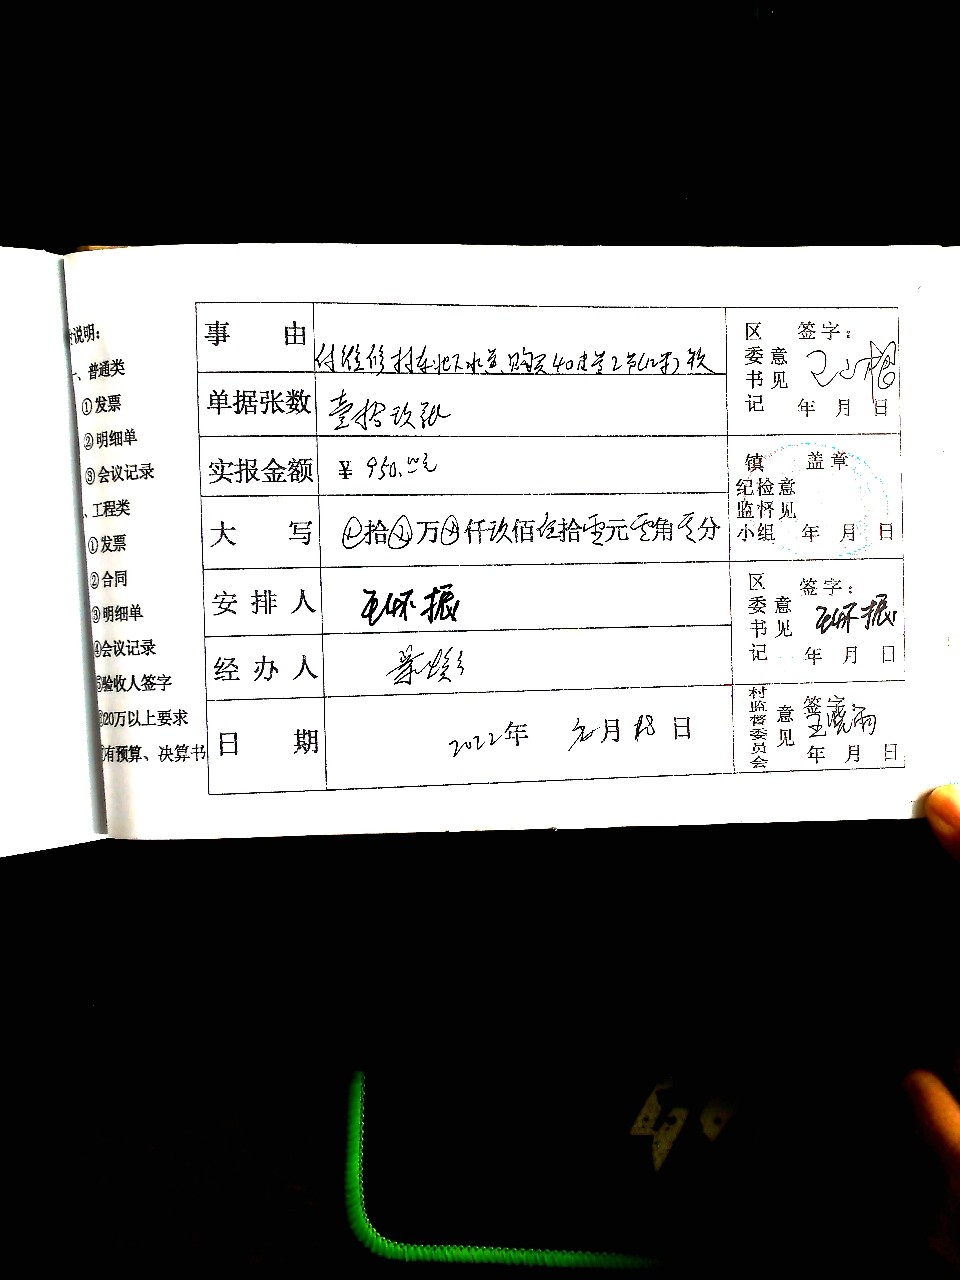 说明:
一、普通类
①发票
②明细单
③会议记录
、工程类
①发票
②合同
③明细单
④会议记录
⑤验收人签字
20万以上要求
有预算、决算书
事 由
付维修村东北下水道购买40 2节(12米)款
单据张数
壹 玖张
实报金额
¥ 950.00元
大 写
拾 万 仟玖佰伍拾零元零角零分
安排人
王怀振
经办人
日 期
2022年 元月18日
区委书记意见 签字:
年 月 日
镇纪检监督小组意见 盖章
年 月 日
区委书记意见 签字:
王怀振
年 月 日
村监督委员会意见 签字
王晓雨
年 月 日